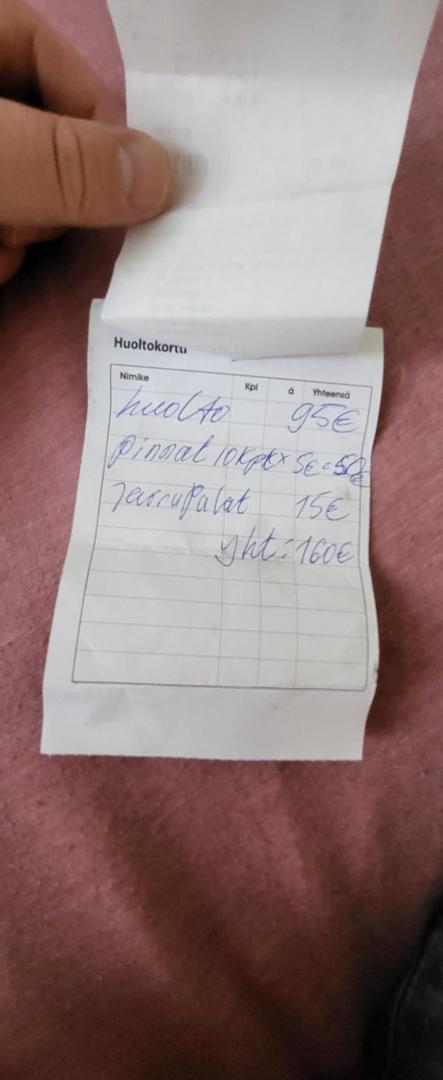 Huoltokortti
Nimike Kpl á Yhteensä
huolto 95€
pinnat 10kpl x 5€=50€
Jarrupalat 15€
yht: 160€